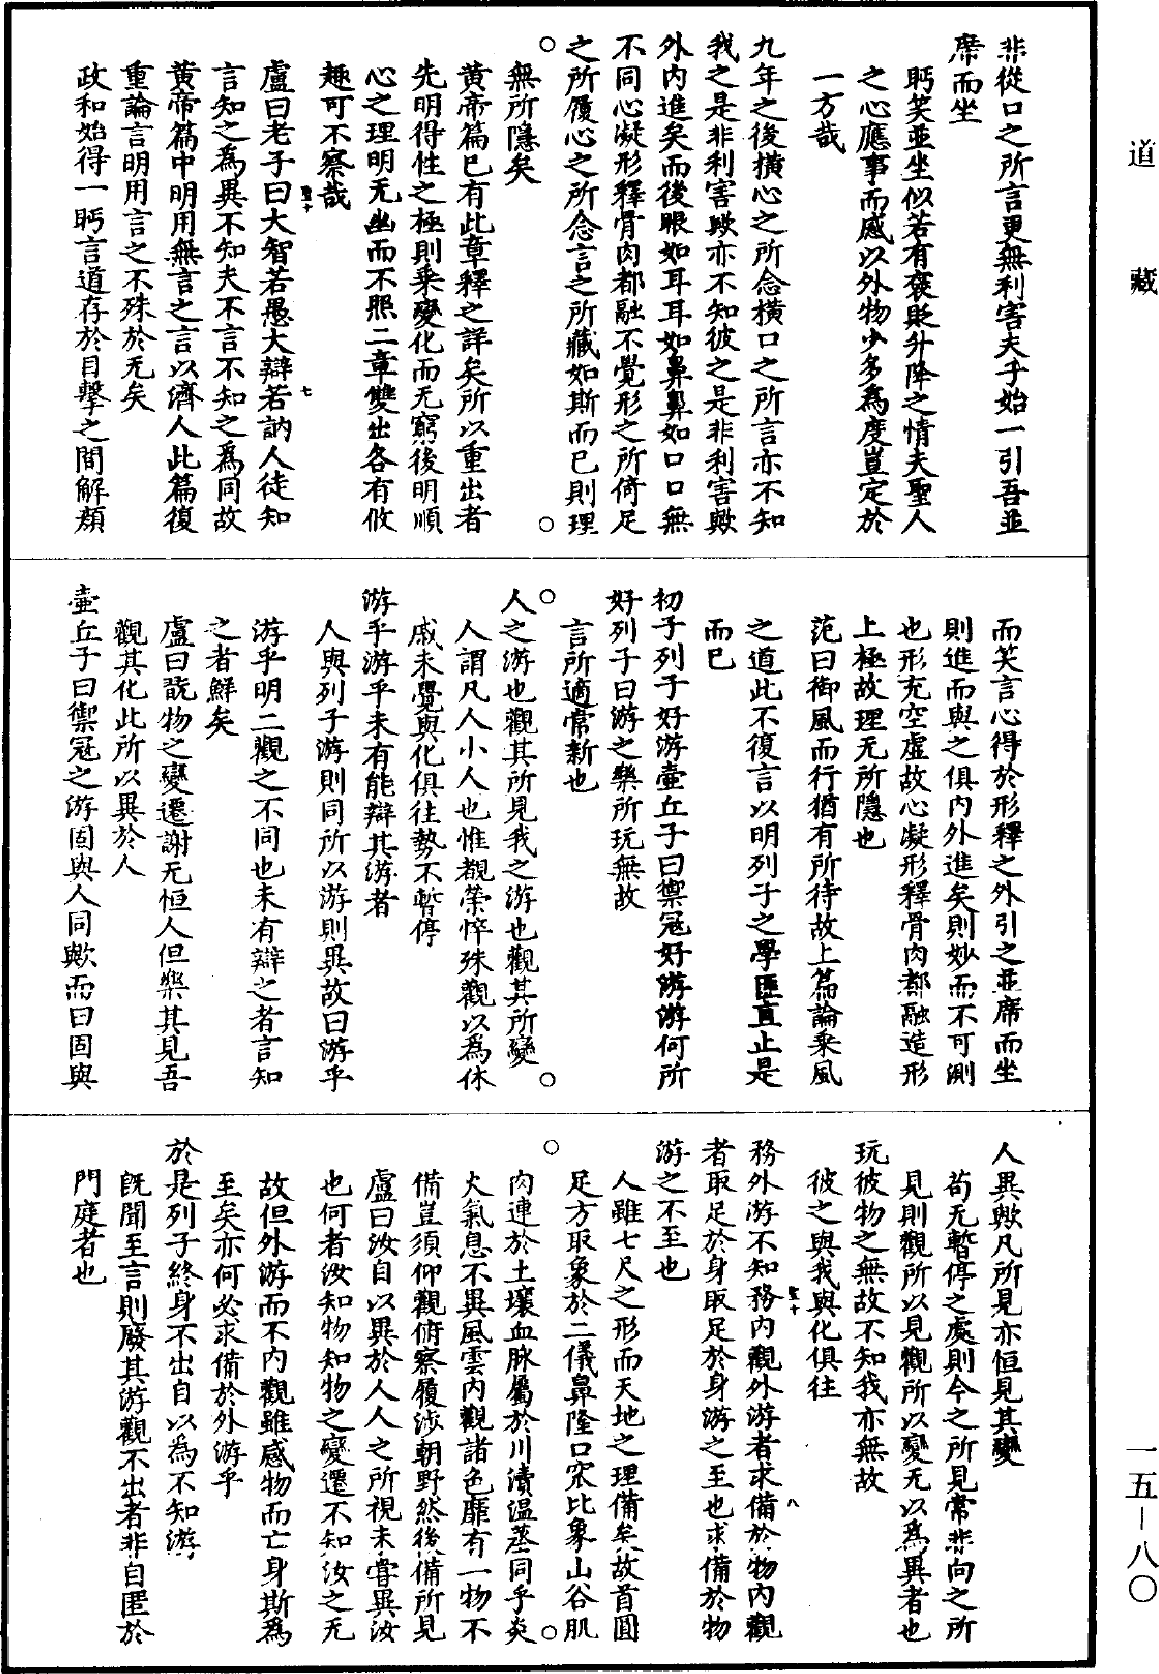 道藏
非從口之所言更無利害夫子始一引吾並
席而坐
眄笑並坐似若有褒貶升降之情夫聖人
之心應事而感以外物少多為度豈定於
一方哉
九年之後橫心之所念橫口之所言亦不知
我之是非利害歟亦不知彼之是非利害歟
外內進矣而後眼如耳耳如鼻鼻如口口無
不同心凝形釋骨肉都融不覺形之所倚足
之所履心之所念言之所藏如斯而已則理
無所隱矣
黃帝篇已有此章釋之詳矣所以重出者
先明得性之極則乘變化而无窮後明順
心之理明无幽而不照二章雙出各有攸
趣可不察哉
盧曰老子曰大智若愚大辯若訥人徒知
言知之為異不知夫不言不知之為同故
黃帝篇中明用無言之言以濟人此篇復
重論言明用言之不殊於无矣
政和始得一眄言道存於目擊之間解顏
七
而笑言心得於形釋之外引之並席而坐
則進而與之俱內外進矣則妙而不可測
也形充空虛故心凝形釋骨肉都融造形
上極故理无所隱也
范曰御風而行猶有所待故上篇論乘風
之道此不復言以明列子之學匪直止是
而已
初子列子好游壷丘子曰禦寇好游游何所
好列子曰游之樂所玩無故
言所適常新也
人之游也觀其所見我之游也觀其所變
人謂凡人小人也惟覩榮悴殊觀以為休
戚未覺與化俱往勢不暫停
游乎游乎未有能辯其游者
人與列子游則同所以游則異故曰游乎
游乎明二觀之不同也未有辯之者言知
之者鮮矣
盧曰翫物之變遷謝无恒人但樂其見吾
觀其化此所以異於人
壷丘子曰禦寇之游固與人同歟而曰固與
人異歟凡所見亦恒見其變
茍无暫停之處則今之所見常非向之所
見則觀所以見觀所以變无以為異者也
玩彼物之無故不知我亦無故
彼之與我與化俱往
務外游不知務內觀外游者求備於物內觀
者取足於身取足於身游之至也求備於物
游之不至也
八
人雖七尺之形而天地之理備矣故首圓
足方取象於二儀鼻隆口窊比象山谷肌
肉連於土壤血脉屬於川瀆溫蒸同乎炎
火氣息不異風雲內觀諸色靡有一物不
備豈須仰觀俯察履涉朝野然後備所見
盧曰汝自以異於人人之所視未甞異汝
也何者汝知物知物之變遷不知汝之无
故但外游而不內觀雖感物而亡身斯為
至矣亦何必求備於外游乎
於是列子終身不出自以為不知游
旣聞至言則廢其游觀不出者非自匿於
門庭者也
一五－八〇